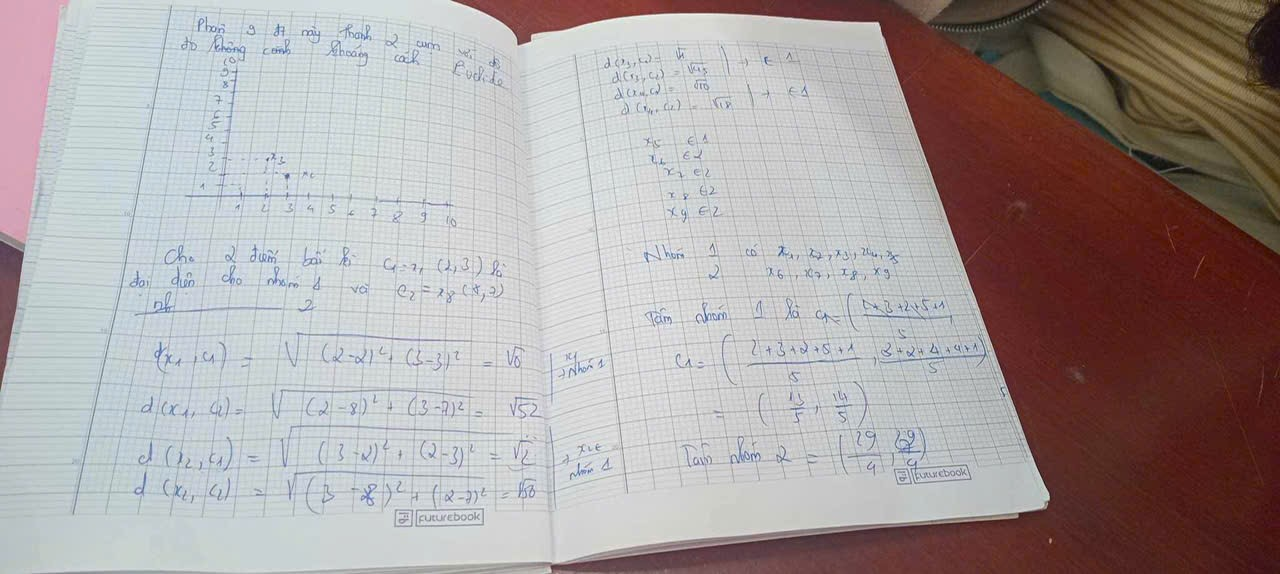 Phân 9 đt này thành 2 cụm với độ
đo không cách khoảng cách Euclide
10
9
8
7
6
5
4
3
2
1
x3
1 2 3 4 5 6 7 8 9 10
Cho 2 điểm bất kì c1 = x1 (2,3) là
đại diện cho nhóm 1 và c2 = x8 (8,7)
2
d(x1, c1) = √((2-2)² + (3-3)²) = √0
x1 → Nhóm 1
d(x1, c2) = √((2-8)² + (3-7)²) = √52
d(x2, c1) = √((3-2)² + (2-3)²) = √2
→ x2 ∈ nhóm 1
d(x2, c2) = √((3-8)² + (2-7)²) = √50
d(x3, c1) = √1
d(x3, c2) = √45
→ ∈ 1
d(x4, c1) = √10
d(x4, c2) = √18
→ ∈ 1
x5 ∈ 1
x6 ∈ 2
x7 ∈ 2
x8 ∈ 2
x9 ∈ 2
Nhóm 1 có x1, x2, x3, x4, x5
2 x6, x7, x8, x9
Tâm nhóm 1 là c1 = (+3+2+5+1 / 5
c1 = (2+3+2+5+1 / 5, 3+2+4+4+1 / 5)
= (13/5, 14/5)
Tâm nhóm 2 = (29/4, /4)
Futurebook
Futurebook